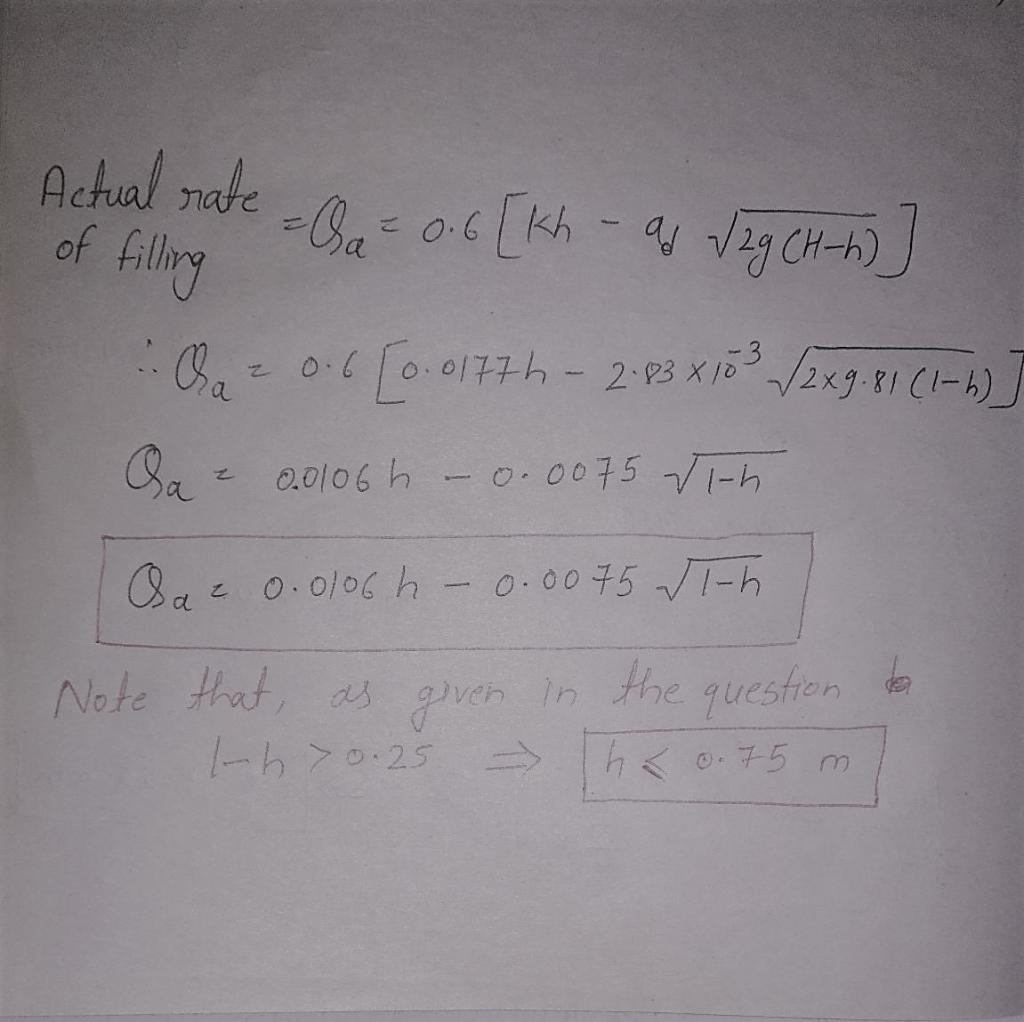 Actual rate of filling = Qa = 0.6 [Kh - a √2g(H-h)]
∴ Qa = 0.6 [0.0177h - 2.83 × 10⁻³ √2×9.81(1-h)]
Qa = 0.0106 h - 0.0075 √1-h
Qa = 0.0106 h - 0.0075 √1-h
Note that, as given in the question
1-h > 0.25 ⇒ h ≤ 0.75 m